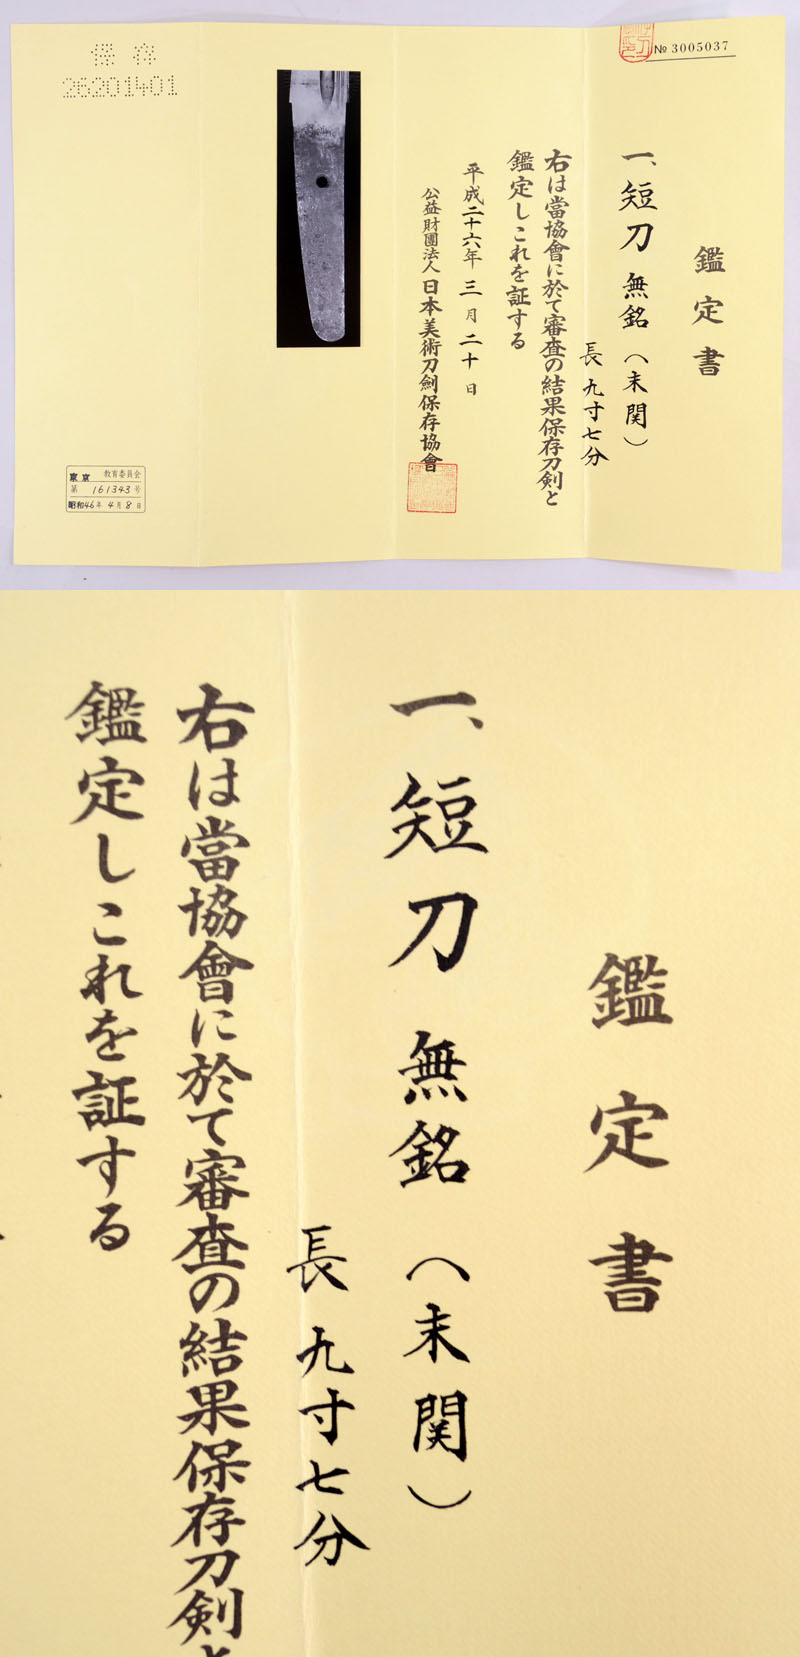 № 3005037
鑑定書
一、短刀 無銘（末関）
長 九寸七分
右は當協會に於て審査の結果保存刀剣と
鑑定しこれを証する
平成二十六年 三月二十日
公益財團法人 日本美術刀劍保存協會
保存
26201401
東京 教育委員会
第 161343 号
昭和46年 4月 8日
鑑定書
一、短刀 無銘（末関）
長 九寸七分
右は當協會に於て審査の結果保存刀剣と
鑑定しこれを証する